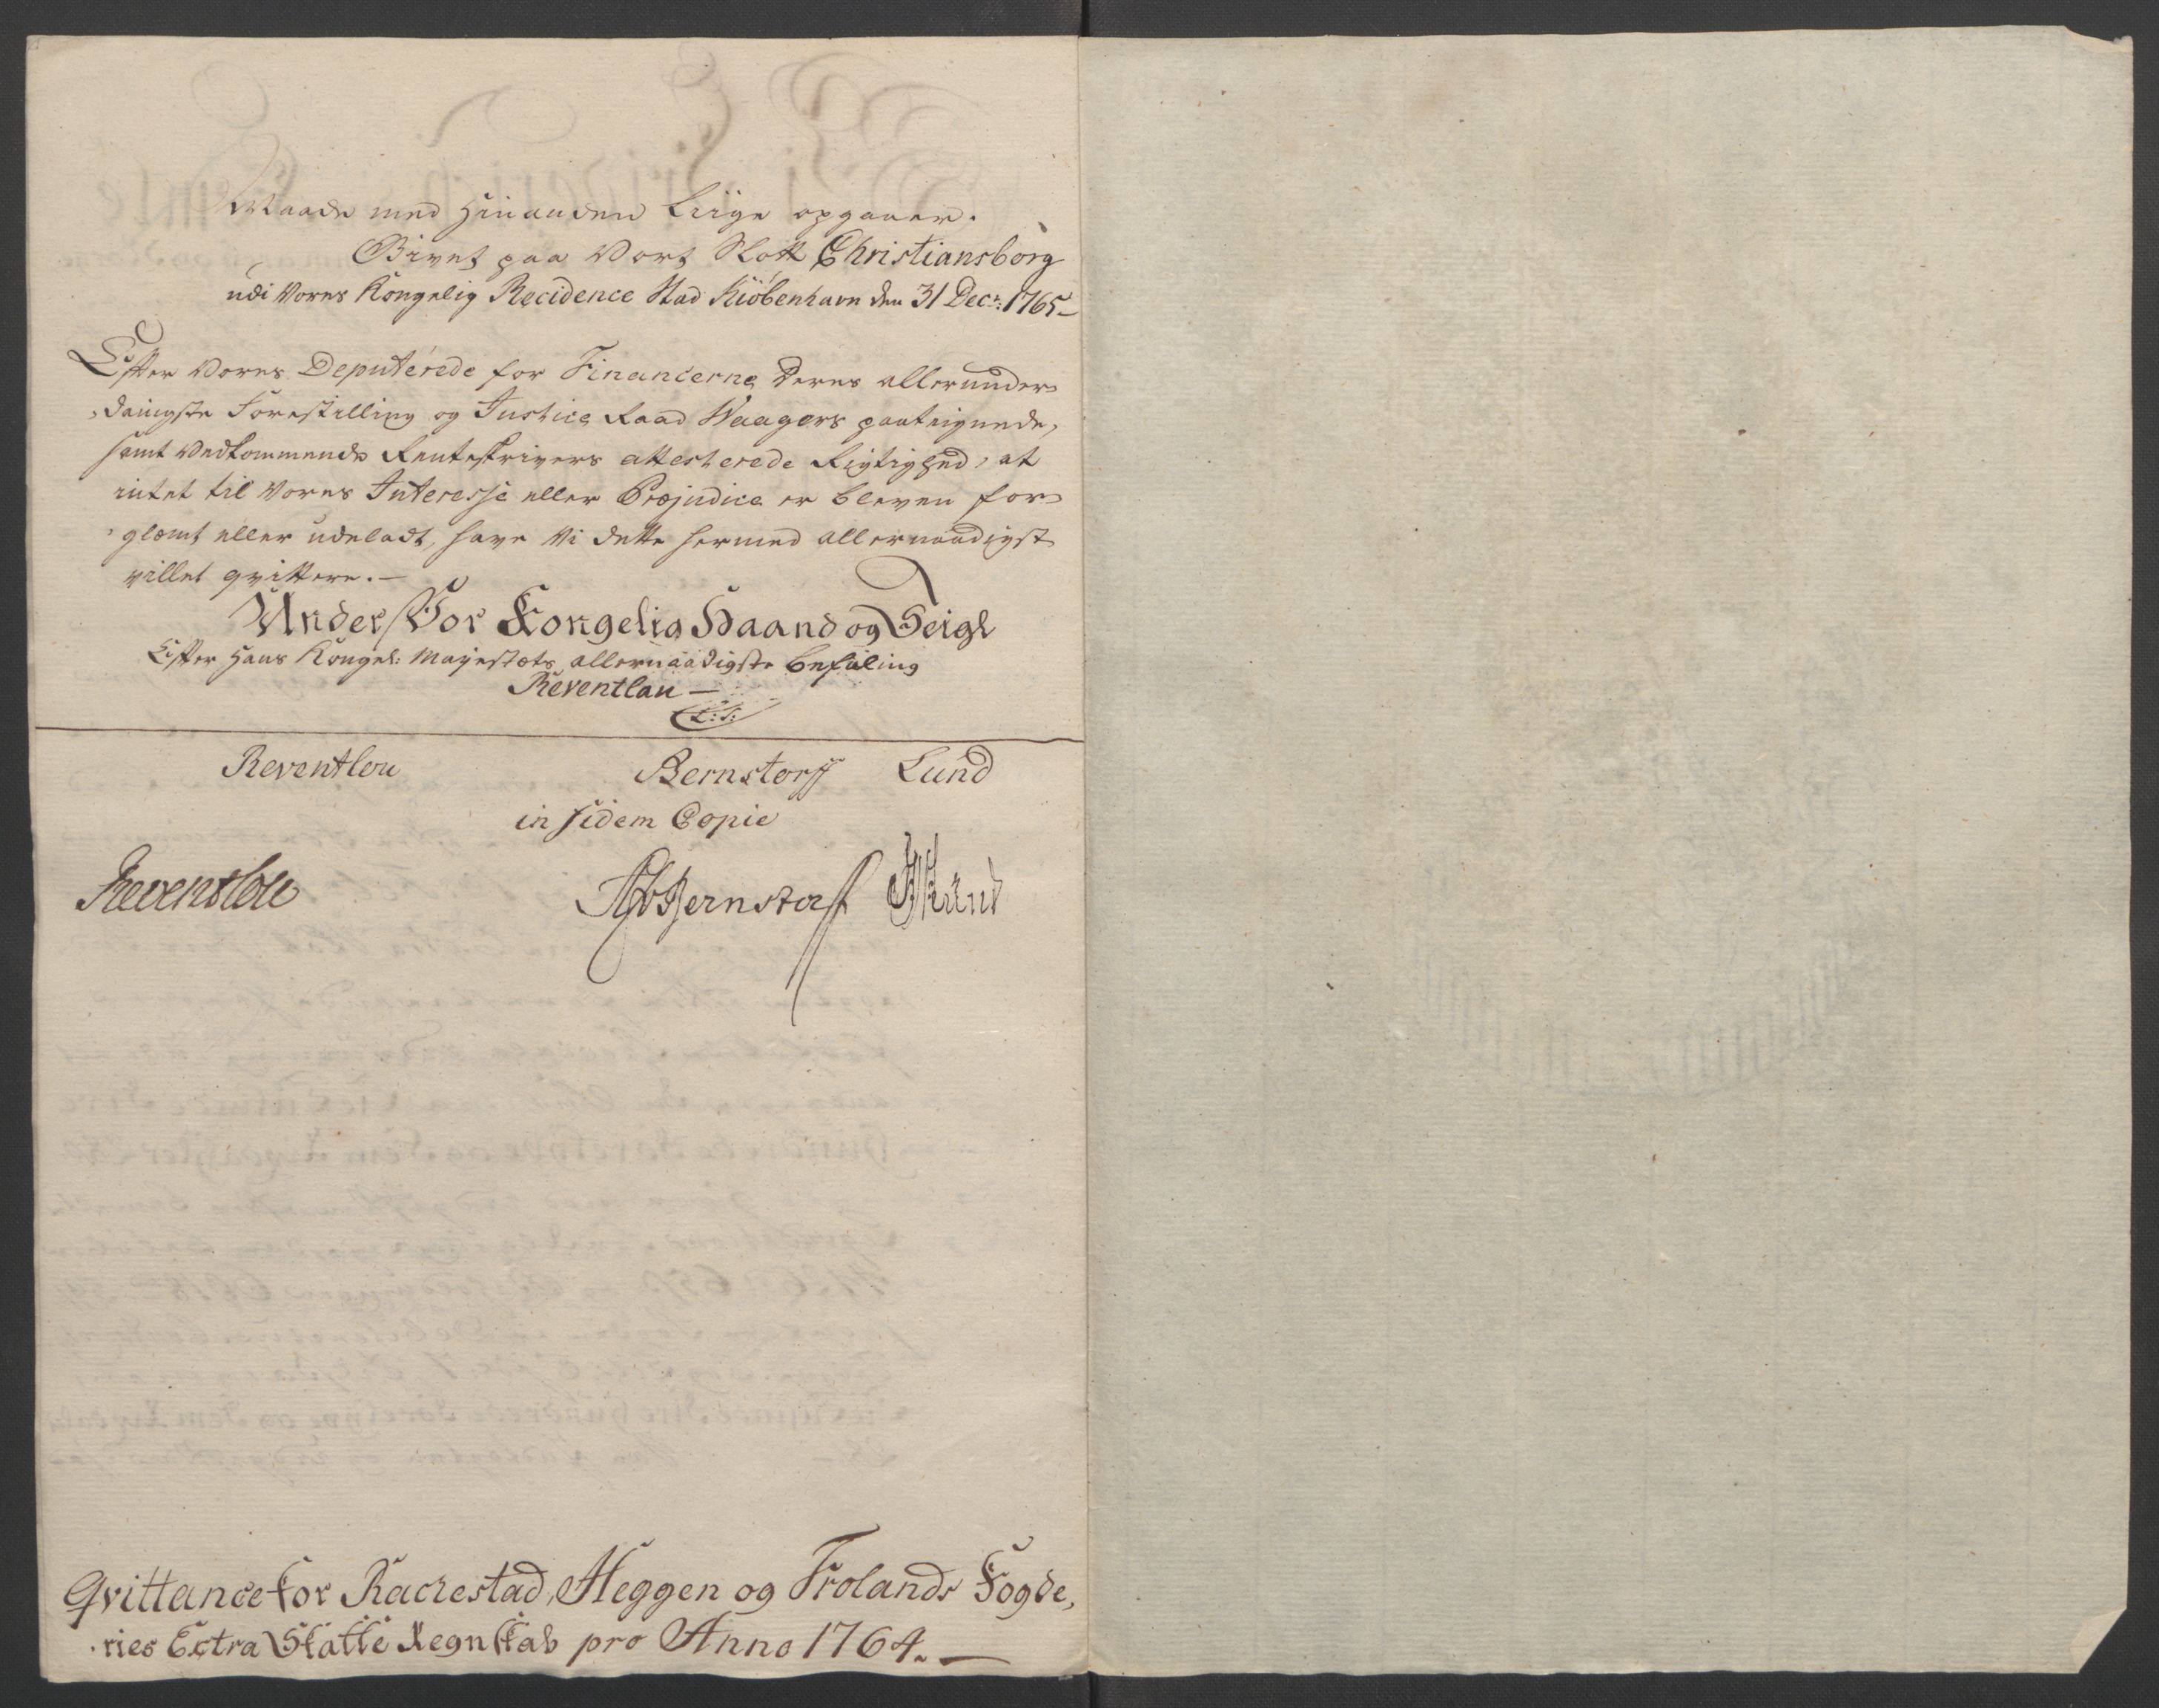 Maade med hinanden Liige opgaaer.
Givet paa Vort Slott Christiansborg
udi Vores Kongelig Recidence Stad Kiöbenhavn den 31 Decr: 1765-
Efter Vores Deputérede for Financerne deres allerunder-
-danigste Forestilling og Justice Raad Waagers paategnede,
samt Vedkommende Renteskrivers attesterede Rigtighed, at
intet til Vores Interesse eller Præjudice er bleven for-
-glemt eller udeladt, have Vi dette hermed allernaadigst
villet qvittere.-
Under Vor Kongelig Haand og Seigl
Efter Hans Kongel: Mayestæts allernaadigste Befaling
Reventlau-
L:S:
Reventlou Bernstorff Lund
in fidem Copie
Reventlou Bernstorff Lund
Qvittance for Rackestad, Heggen og Frolands Fogde,
.ries Extra Skatte Regnskab pro Anno 1764.-